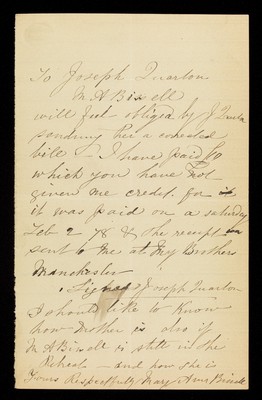 To Joseph Quarton
M A Bissell
will feel obliged by J Quarton
sending her a corrected
bill - I have paid
which you have not
given me credit for
it was paid on a saturday
Feb 2 - 78 & the receipt
sent to me at my Brothers
Manchester
Signed Joseph Quarton
I should like to know
how Mother is also if
M A Bissell is still in the
and how she is
Yours Respectfully Mary Ann Bissell